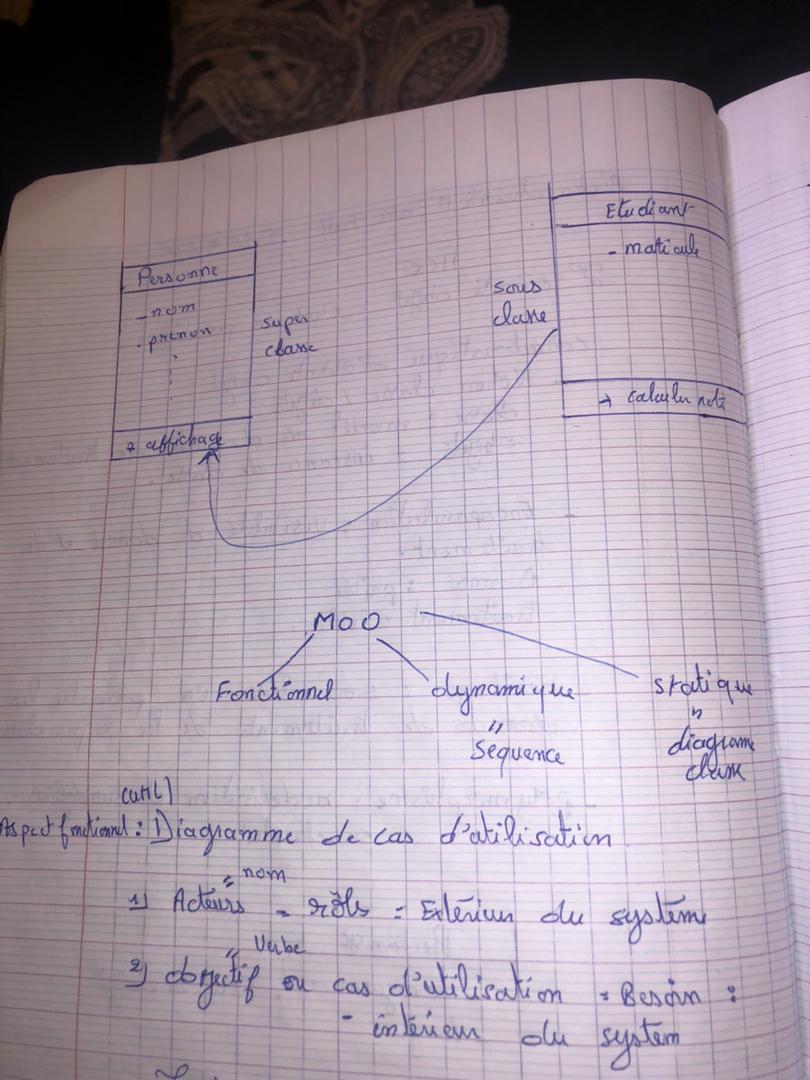 Personne
- nom
- prenon
+ affichage
super
classe
sous
classe
Etudiant
- maticule
→ calculer note
MOO
Fonctionnel
dynamique
statique
"
Sequence
"
diagrame
classe
(util)
Aspect fonctionnel : 1) Diagramme de cas d'utilisation
" nom
1) Acteurs = rôles = Extérieur du système
" Verbe
2) objectif ou cas d'utilisation = Besoin :
- intérieur du system